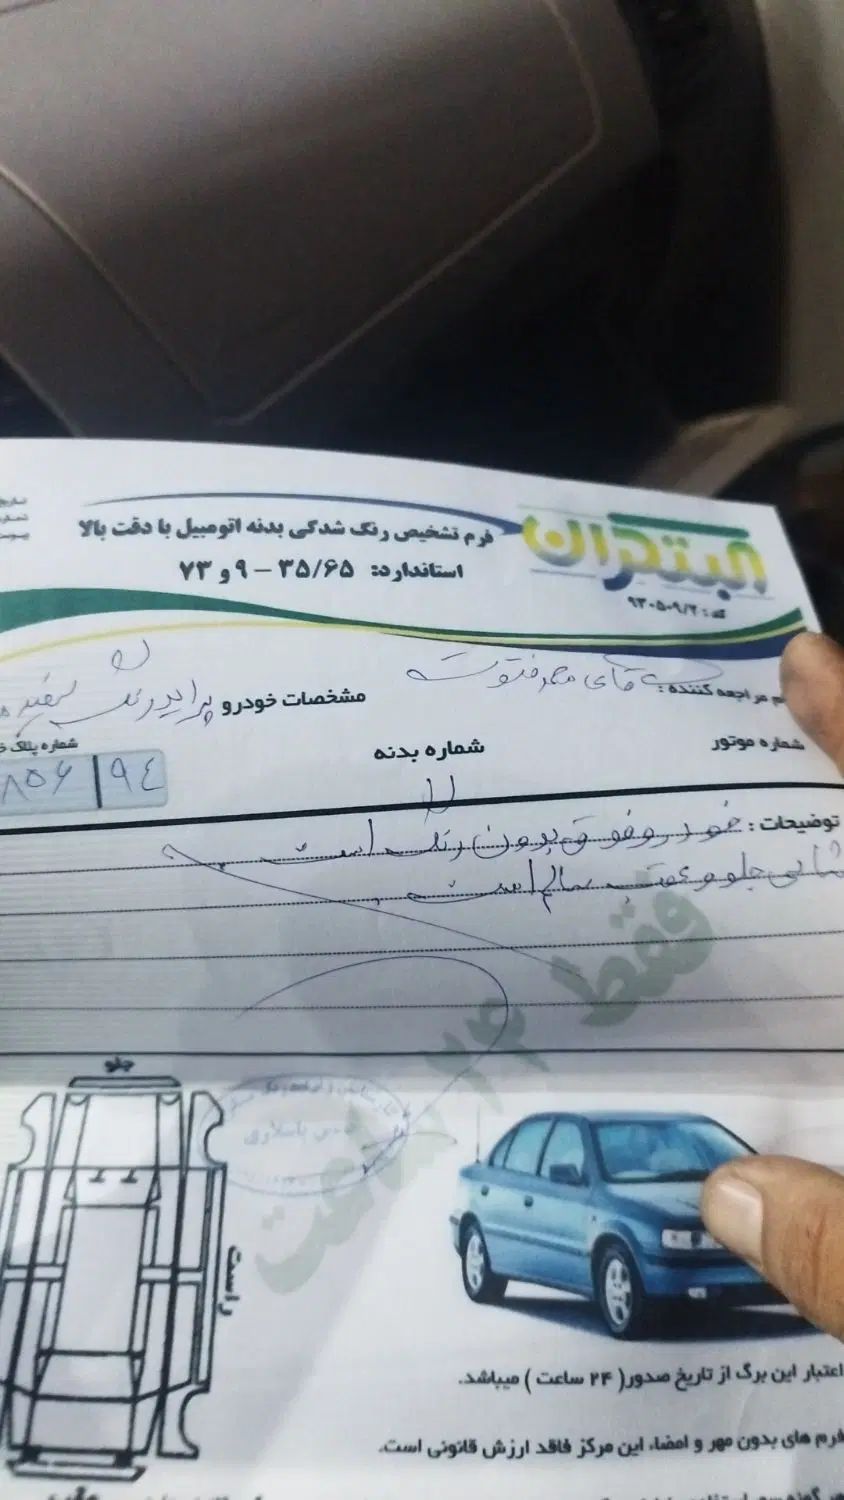 المبتکران
فرم تشخیص رنگ شدگی بدنه اتومبیل با دقت بالا
استاندارد: ۳۵/۶۵ – ۹ و ۷۳
کد: ۹۳۰۵۰۹/۲
م مراجعه کننده: آقای
مشخصات خودرو پراید رنگ سفید
شماره موتور
شماره بدنه
شماره پلاک خ
۸۵۶ | ۹۴
توضیحات: خودرو فوق بدون رنگ است
جلو و عقب سالم است
فقط ۲۴ ساعت
جلو
راست
اعتبار این برگ از تاریخ صدور( ۲۴ ساعت ) میباشد.
فرم های بدون مهر و امضاء، این مرکز فاقد ارزش قانونی است.